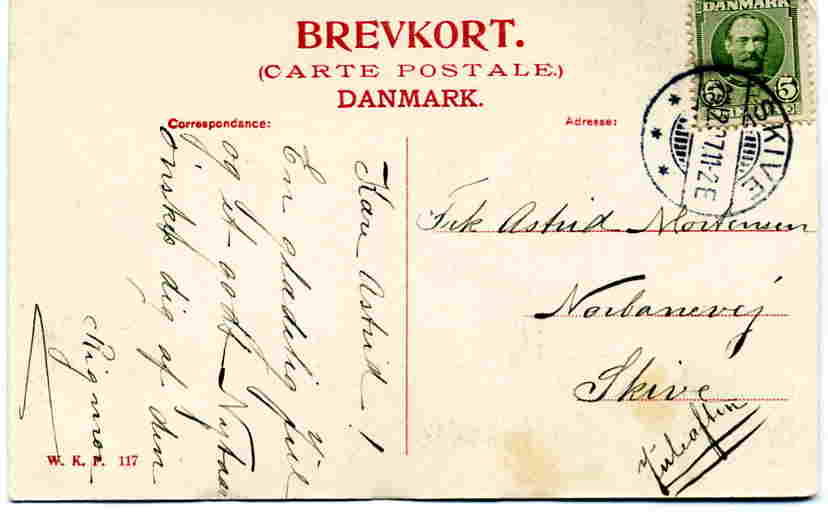 BREVKORT.
(CARTE POSTALE.)
DANMARK.
DANMARK
5 5
SKIVE
2.07.11-2E
Correspondance:
Adresse:
Kære Astrid!
En glædelig Jul
og et godt Nytaar
ønskes dig af din
Mignon
Frk Astrid Mortensen
Norbanevej
Skive
Juleaften
W. K. F. 117